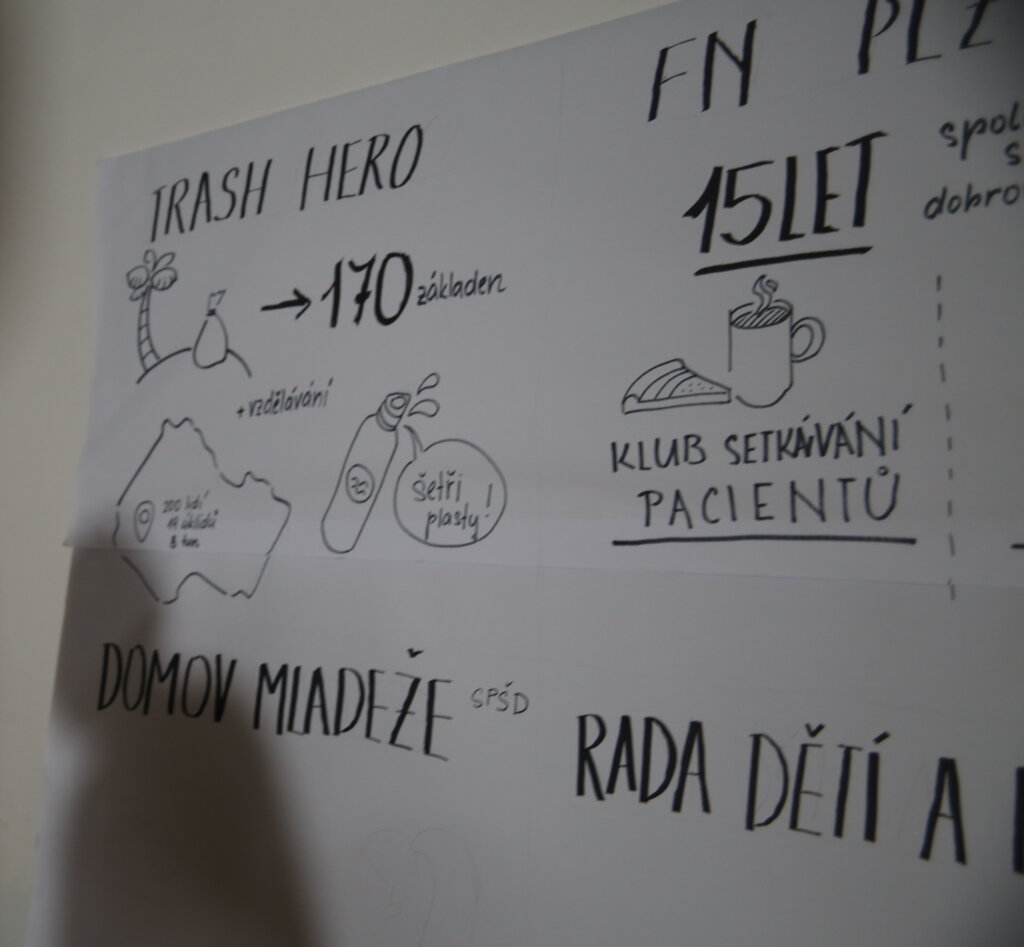 TRASH HERO
→ 170 základen
+ vzdělávání
200 lidí
14 úklidů
8 tun
šetři
plasty!
FN PLZ
15 LET
spol
s
dobro
KLUB SETKÁVÁNÍ
PACIENTŮ
DOMOV MLADEŽE SPŠD
RADA DĚTÍ A